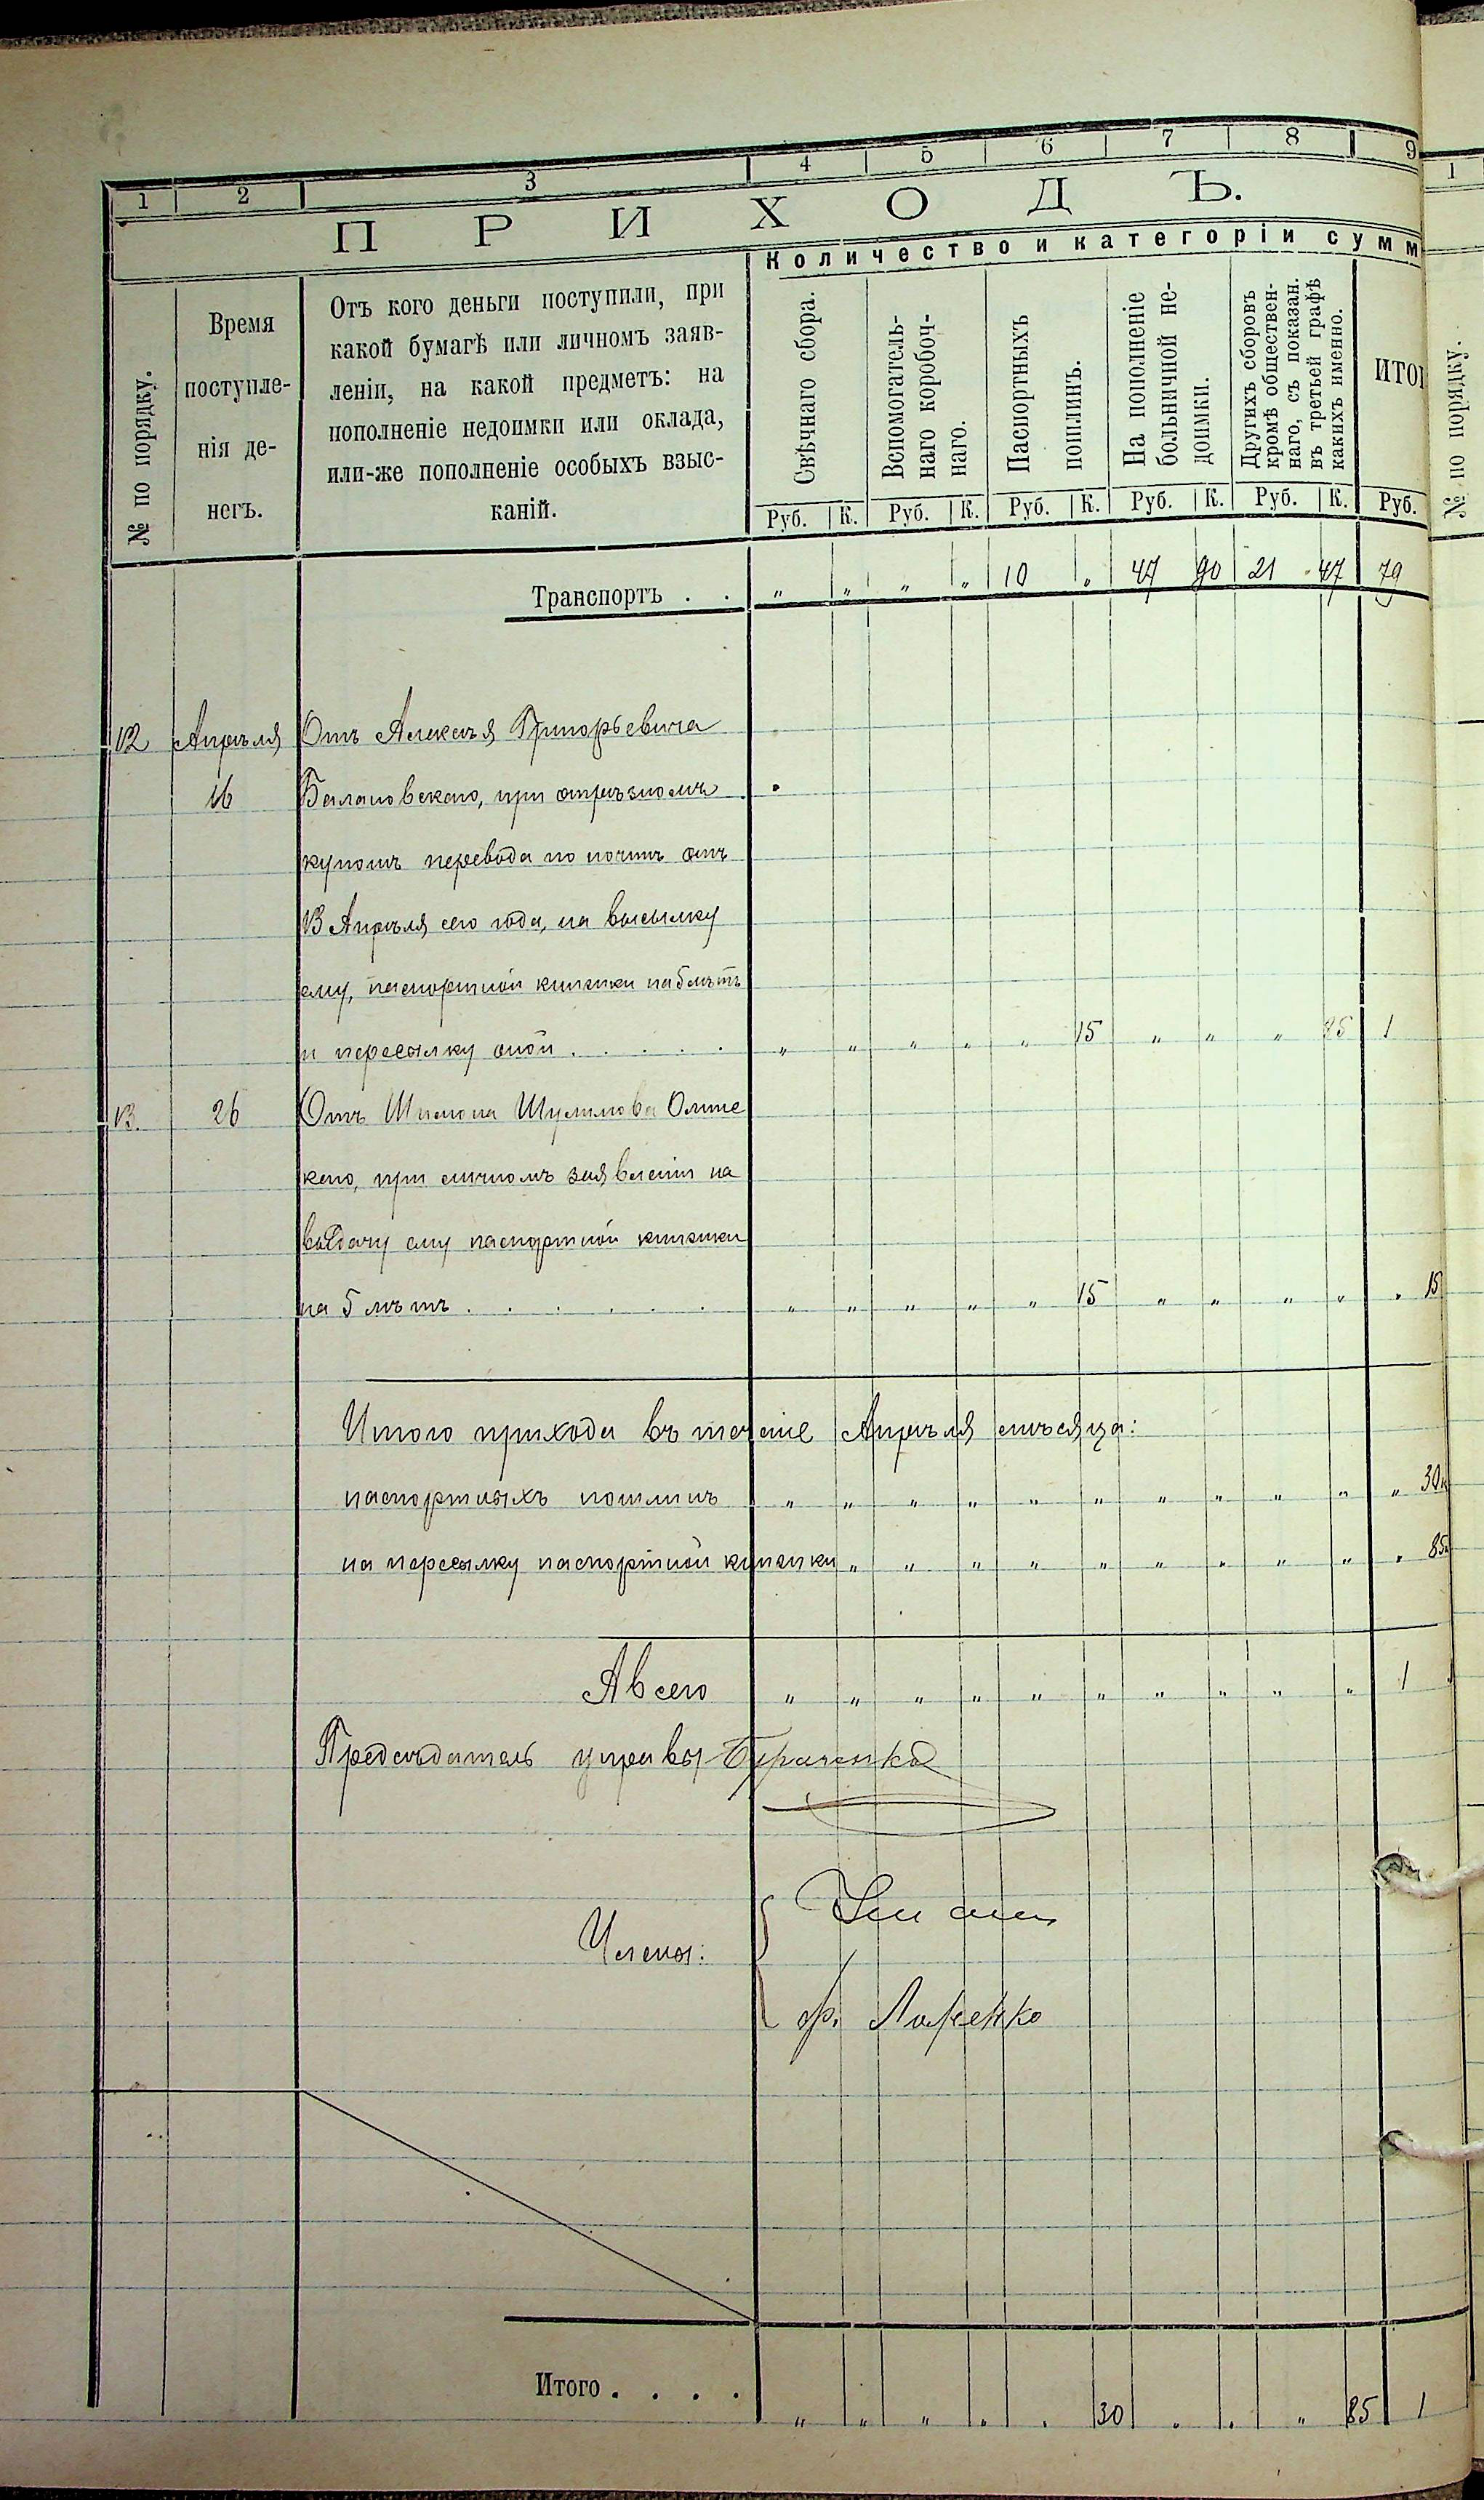 1 2 3 4 5 6 7 8 9
ПРИХОДЪ.
Количество и категоріи сумм
№ по порядку.
Время
поступле-
нія де-
негъ.
Отъ кого деньги поступили, при
какой бумагѣ или личномъ заяв-
леніи, на какой предметъ: на
пополненіе недоимки или оклада,
или-же пополненіе особыхъ взыс-
каній.
Свѣчнаго сбора.
Вспомогатель-
наго коробоч-
наго.
Паспортныхъ
пошлинъ.
На пополненіе
больничной не-
доимки.
Другихъ сборовъ
кромѣ обществен-
наго, съ показан.
въ третьей графѣ
какихъ именно.
ИТОГ
Руб. К. Руб. К. Руб. К. Руб. К. Руб. К. Руб.
Транспортъ . . " " " " 10 " 47 90 21 47 79
12 Апрѣля Отъ Алексѣя Григорьевича
16 Балановскаго, при отрѣзномъ
купонѣ перевода по почтѣ отъ
13 Апрѣля сего года, на высылку
ему, паспортной книжки на 5 лѣтъ
и пересылку оной . . . . . " " " " " 15 " " " 85 1
13. 26 Отъ Шулимова
каго, при личномъ заявленіи на
выдачу ему паспортной книжки
на 5 лѣтъ . . . . . . " " " " " 15 " " " " " 15
Итого прихода въ теченіе Апрѣля мѣсяца:
паспортныхъ пошлинъ " " " " " " " " " " " 30к
на пересылку паспортной книжки " " " " " " " " " " 85к
А всего " " " " " " " " " " 1
Предсѣдатель управы
Члены:
Ф.
Итого . . . . " " " " " 30 " " " 85 1
1
№ по порядку.